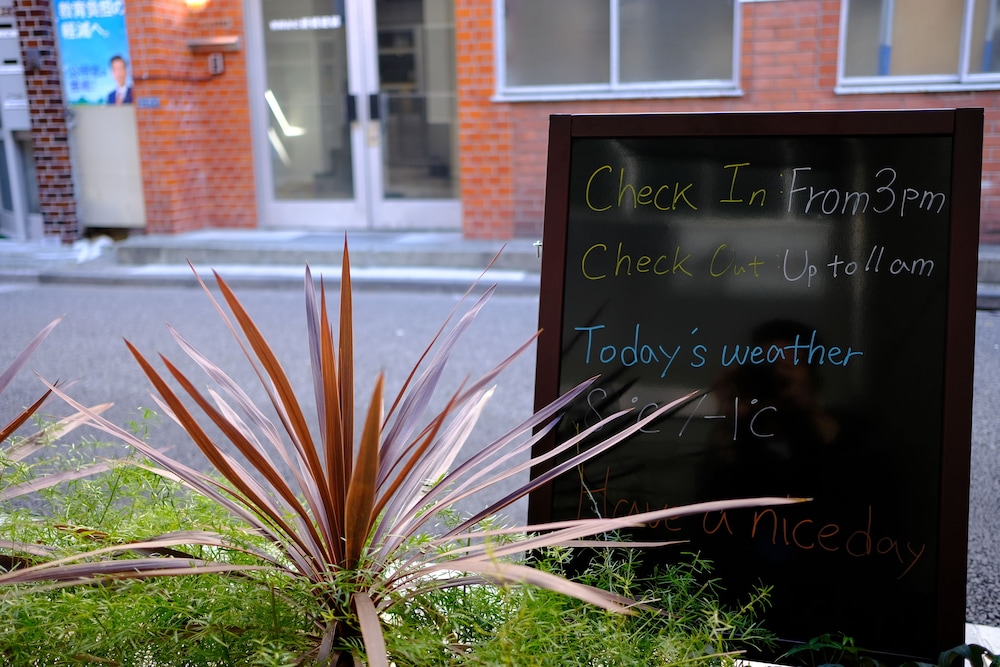 教育負担の
軽減へ。
Check In From 3pm
Check Out Up to 11am
Today's weather
8°C / -1°C
Have a nice day